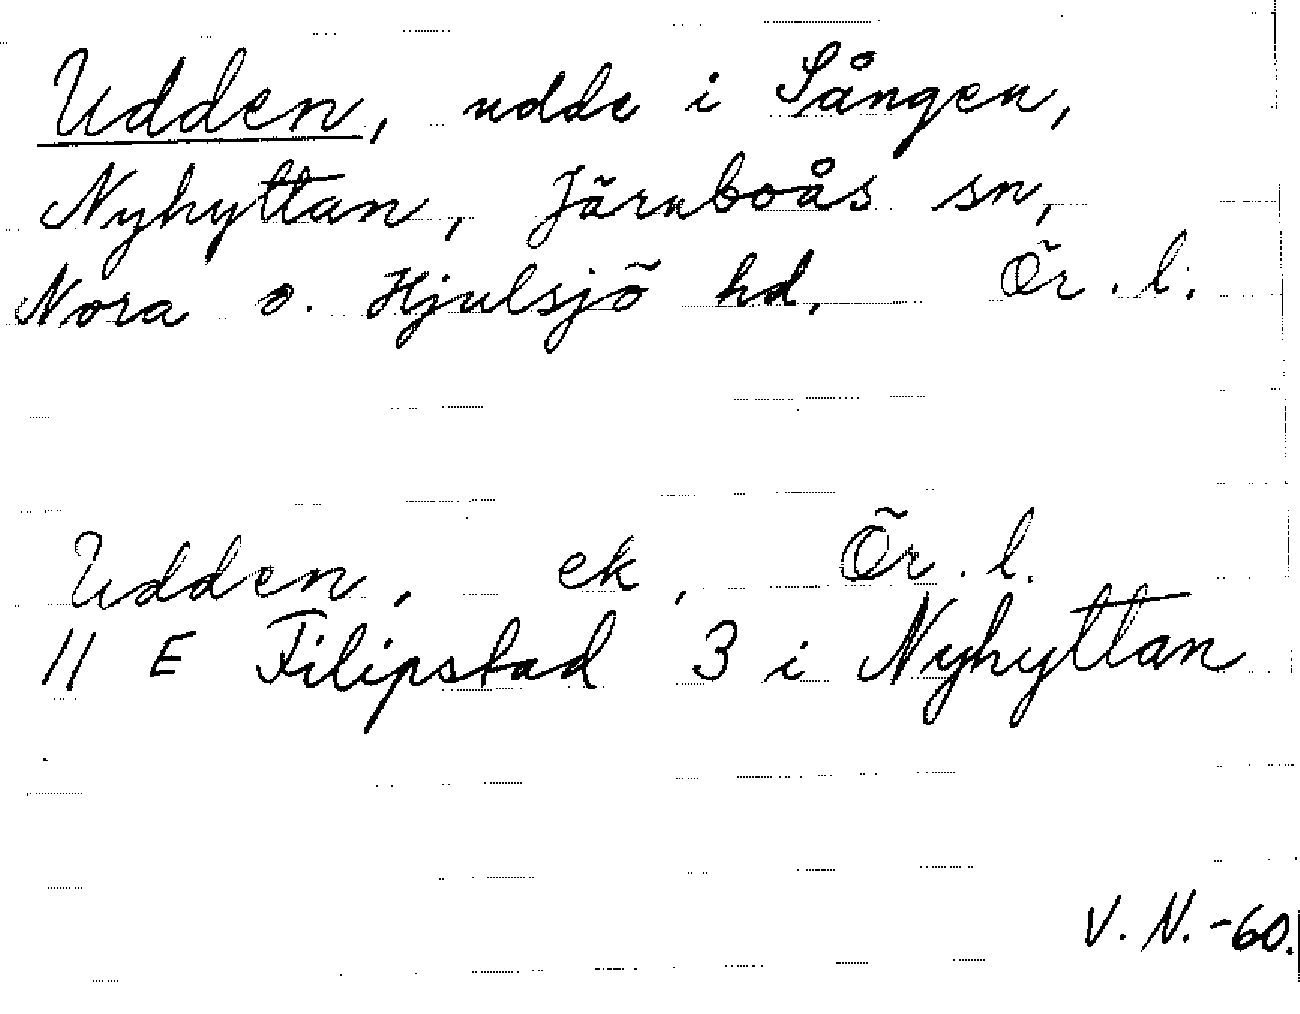 Udden, udde i Sången,
Nyhyttan, Järnboås sn,
Nora o. Hjulsjö hd, Ör. l.
Udden, ek, Ör. l.
11 E Filipstad 3 i Nyhyttan
V. N. -60.